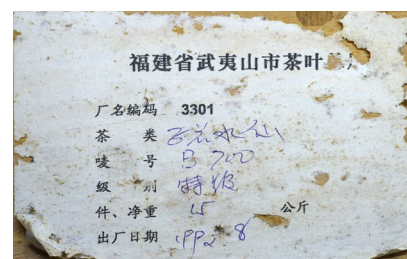 福建省武夷山市茶叶
厂名编码 3301
茶类 正岩水仙
唛号 B700
级别 特级
件、净重 15 公斤
出厂日期 1992.8